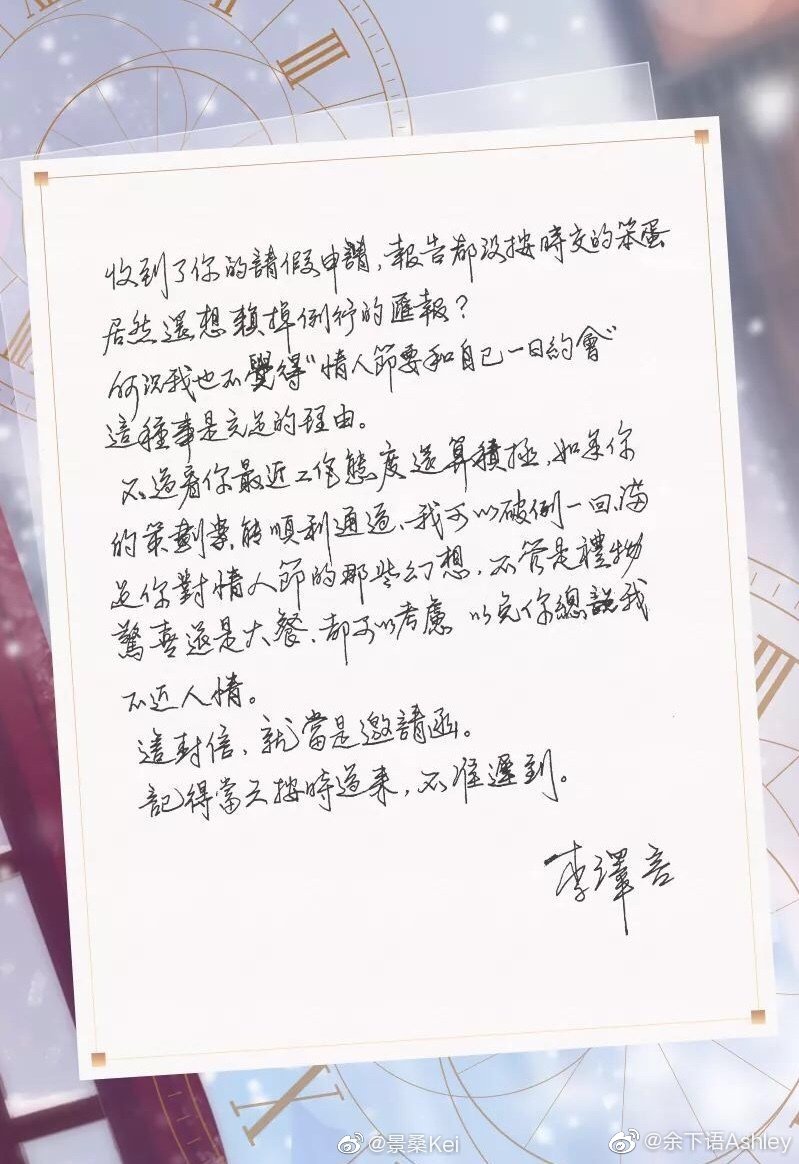 收到了你的請假申請，報告都没按時交的笨蛋
居然還想賴掉例行的匯報？
何況我也不覺得“情人節要和自己一日約會”
這種事是充足的理由。
不過看你最近工作態度還算積極，如果你
的策劃案能順利通過，我可以破例一回，滿
足你對情人節的那些幻想，不管是禮物
驚喜還是大餐，都可以考慮 以免你總說我
不近人情。
這封信，就當是邀請函。
記得當天按時過來，不准遲到。
李澤言
@景桑Kei
@余下语Ashley